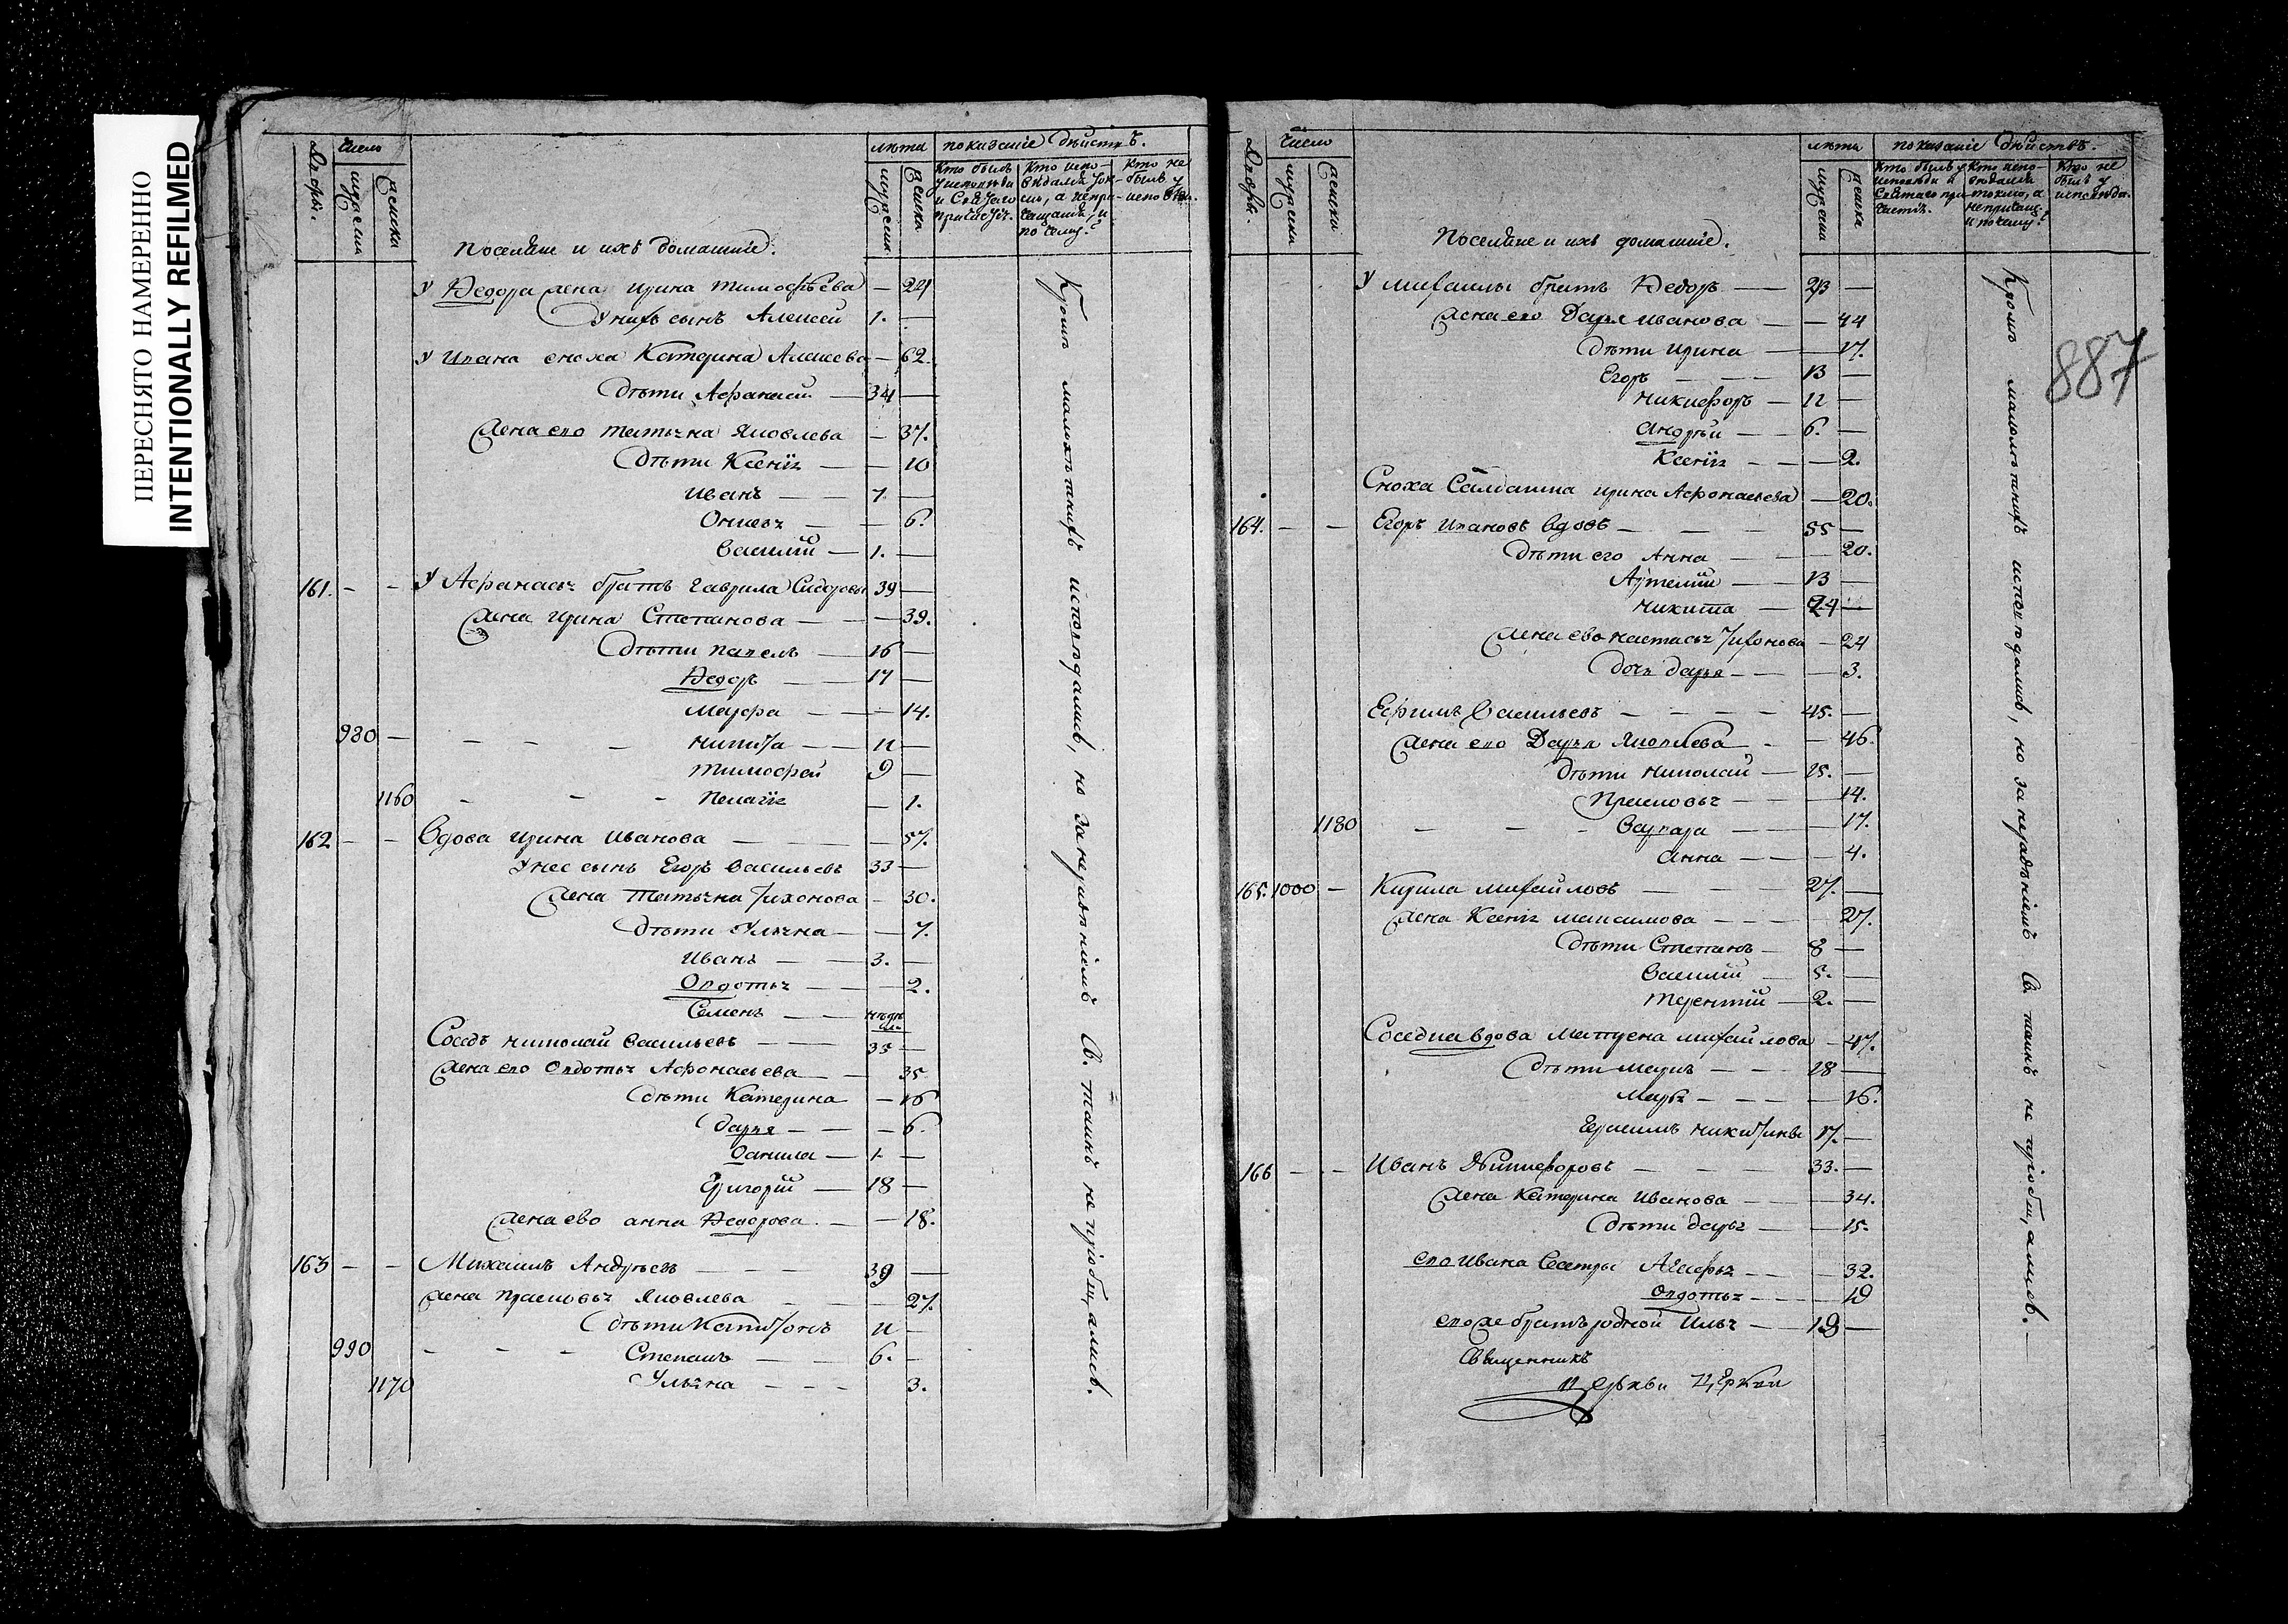 ПЕРЕСНЯТО НАМЕРЕННО
INTENTIONALLY REFILMED
Дворы.
Число
мужеска
женска
Поселяне и ихъ домашніе.
лѣта
мужеска
женска
показаніе дѣйствъ.
Кто былъ у исповѣди и Святаго причастія.
Кто исповѣдался токмо, а непричащался, и по чему?
Кто не былъ у исповѣди.
У Ѳедора жена Ирина Тимофѣева — 24
У нихъ сынъ Алексей 1. —
У Ивана сноха Катерина Алексеева — 62.
Дѣти Афанасій — 34 —
Жена ево Татьяна Яковлева — 37.
Дѣти Ксенія — — 10
Иванъ — 7 —
— 6.
Василій — 1. —
161. - - У Афанасья братъ Гаврила Сидоровъ 39 —
Жена Ирина Степанова — — 39.
Дѣти Павелъ — 16 —
Ѳедоръ — 17 —
Мавра — — 14.
980 — - - - Никита — 11 —
Тимофей 9 —
1160 - - - Пелагія — 1.
162 - - Вдова Ирина Иванова — — 57.
У нее сынъ Егоръ Васильевъ 33 —
Жена Татьяна Тихонова — 30.
Дѣти Ульяна — — 7.
Иванъ — 3. —
Овдотья — — 2.
Семенъ —
Соседъ Николай Васильевъ — 35 —
Жена ево Овдотья Афонасьева — — 35
Дѣти Катерина — 16
Дарья — — 6.
Данила — 1 —
Григорій — 18 —
Жена ево Анна Ѳедорова — — 18.
163 - - Михаилъ Андреевъ — 39 —
Жена Прасковья Яковлева — 27.
Дѣти Капитонъ 11 —
990 - - - Степанъ — 6. —
1170 Ульяна — 3.
Кромѣ малолѣтнихъ исповѣдались, но за нерадѣніемъ Св. таинъ не пріобщались.
Дворы.
Число
мужеска
женска
Поселяне и ихъ домашніе.
лѣта
мужеска
женска
показаніе дѣйствъ.
Кто былъ у исповѣди и Святаго причастія.
Кто исповѣдался токмо, а непричащ: и почему?
Кто не былъ у исповѣди.
887
У Михаилы братъ Ѳедоръ — 43 —
Жена ево Дарья Иванова — — 44
Дѣти Ирина — — 17.
Егоръ — 13 —
Никифоръ — 12 —
Андрѣй — 6. —
Ксенія — — 2.
Сноха Салдатка Ирина Афонасьева — 20.
164. - - Егоръ Ивановъ вдовъ — 55 —
Дѣти его Анна — 20.
Артемій — 13 —
Никита — 24 —
Жена ево Настасья Тихонова — 24
Дочь Дарья — 3.
Ефимъ Васильевъ — 45. —
Жена ево Дарья Яковлева — — 46.
Дѣти Николай — 15. —
Прасковья — — 14.
1180 - - - Варвара — — 17.
Анна — — 4.
165. 1000 — Кирила Михайловъ — 27. —
Жена Ксенія Максимова — 27.
Дѣти Степанъ — 8 —
Василій — 5. —
Терентій — 2. —
Соседка вдова Матрена Михайлова — 47.
Дѣти — 18 —
Марья — — 16.
Герасимъ Никитинъ 17. —
166 - - Иванъ Никифоровъ — 33. —
Жена Катерина Иванова — — 34.
Дѣти Дарья — — 15.
ево Ивана Сестры Агафья — — 32.
Овдотья — — 19
ево же братъ родной Илья — 19 —
Священникъ
Кромѣ малолѣтнихъ исповѣдались, но за нерадѣніемъ Св. таинъ не пріобщались.